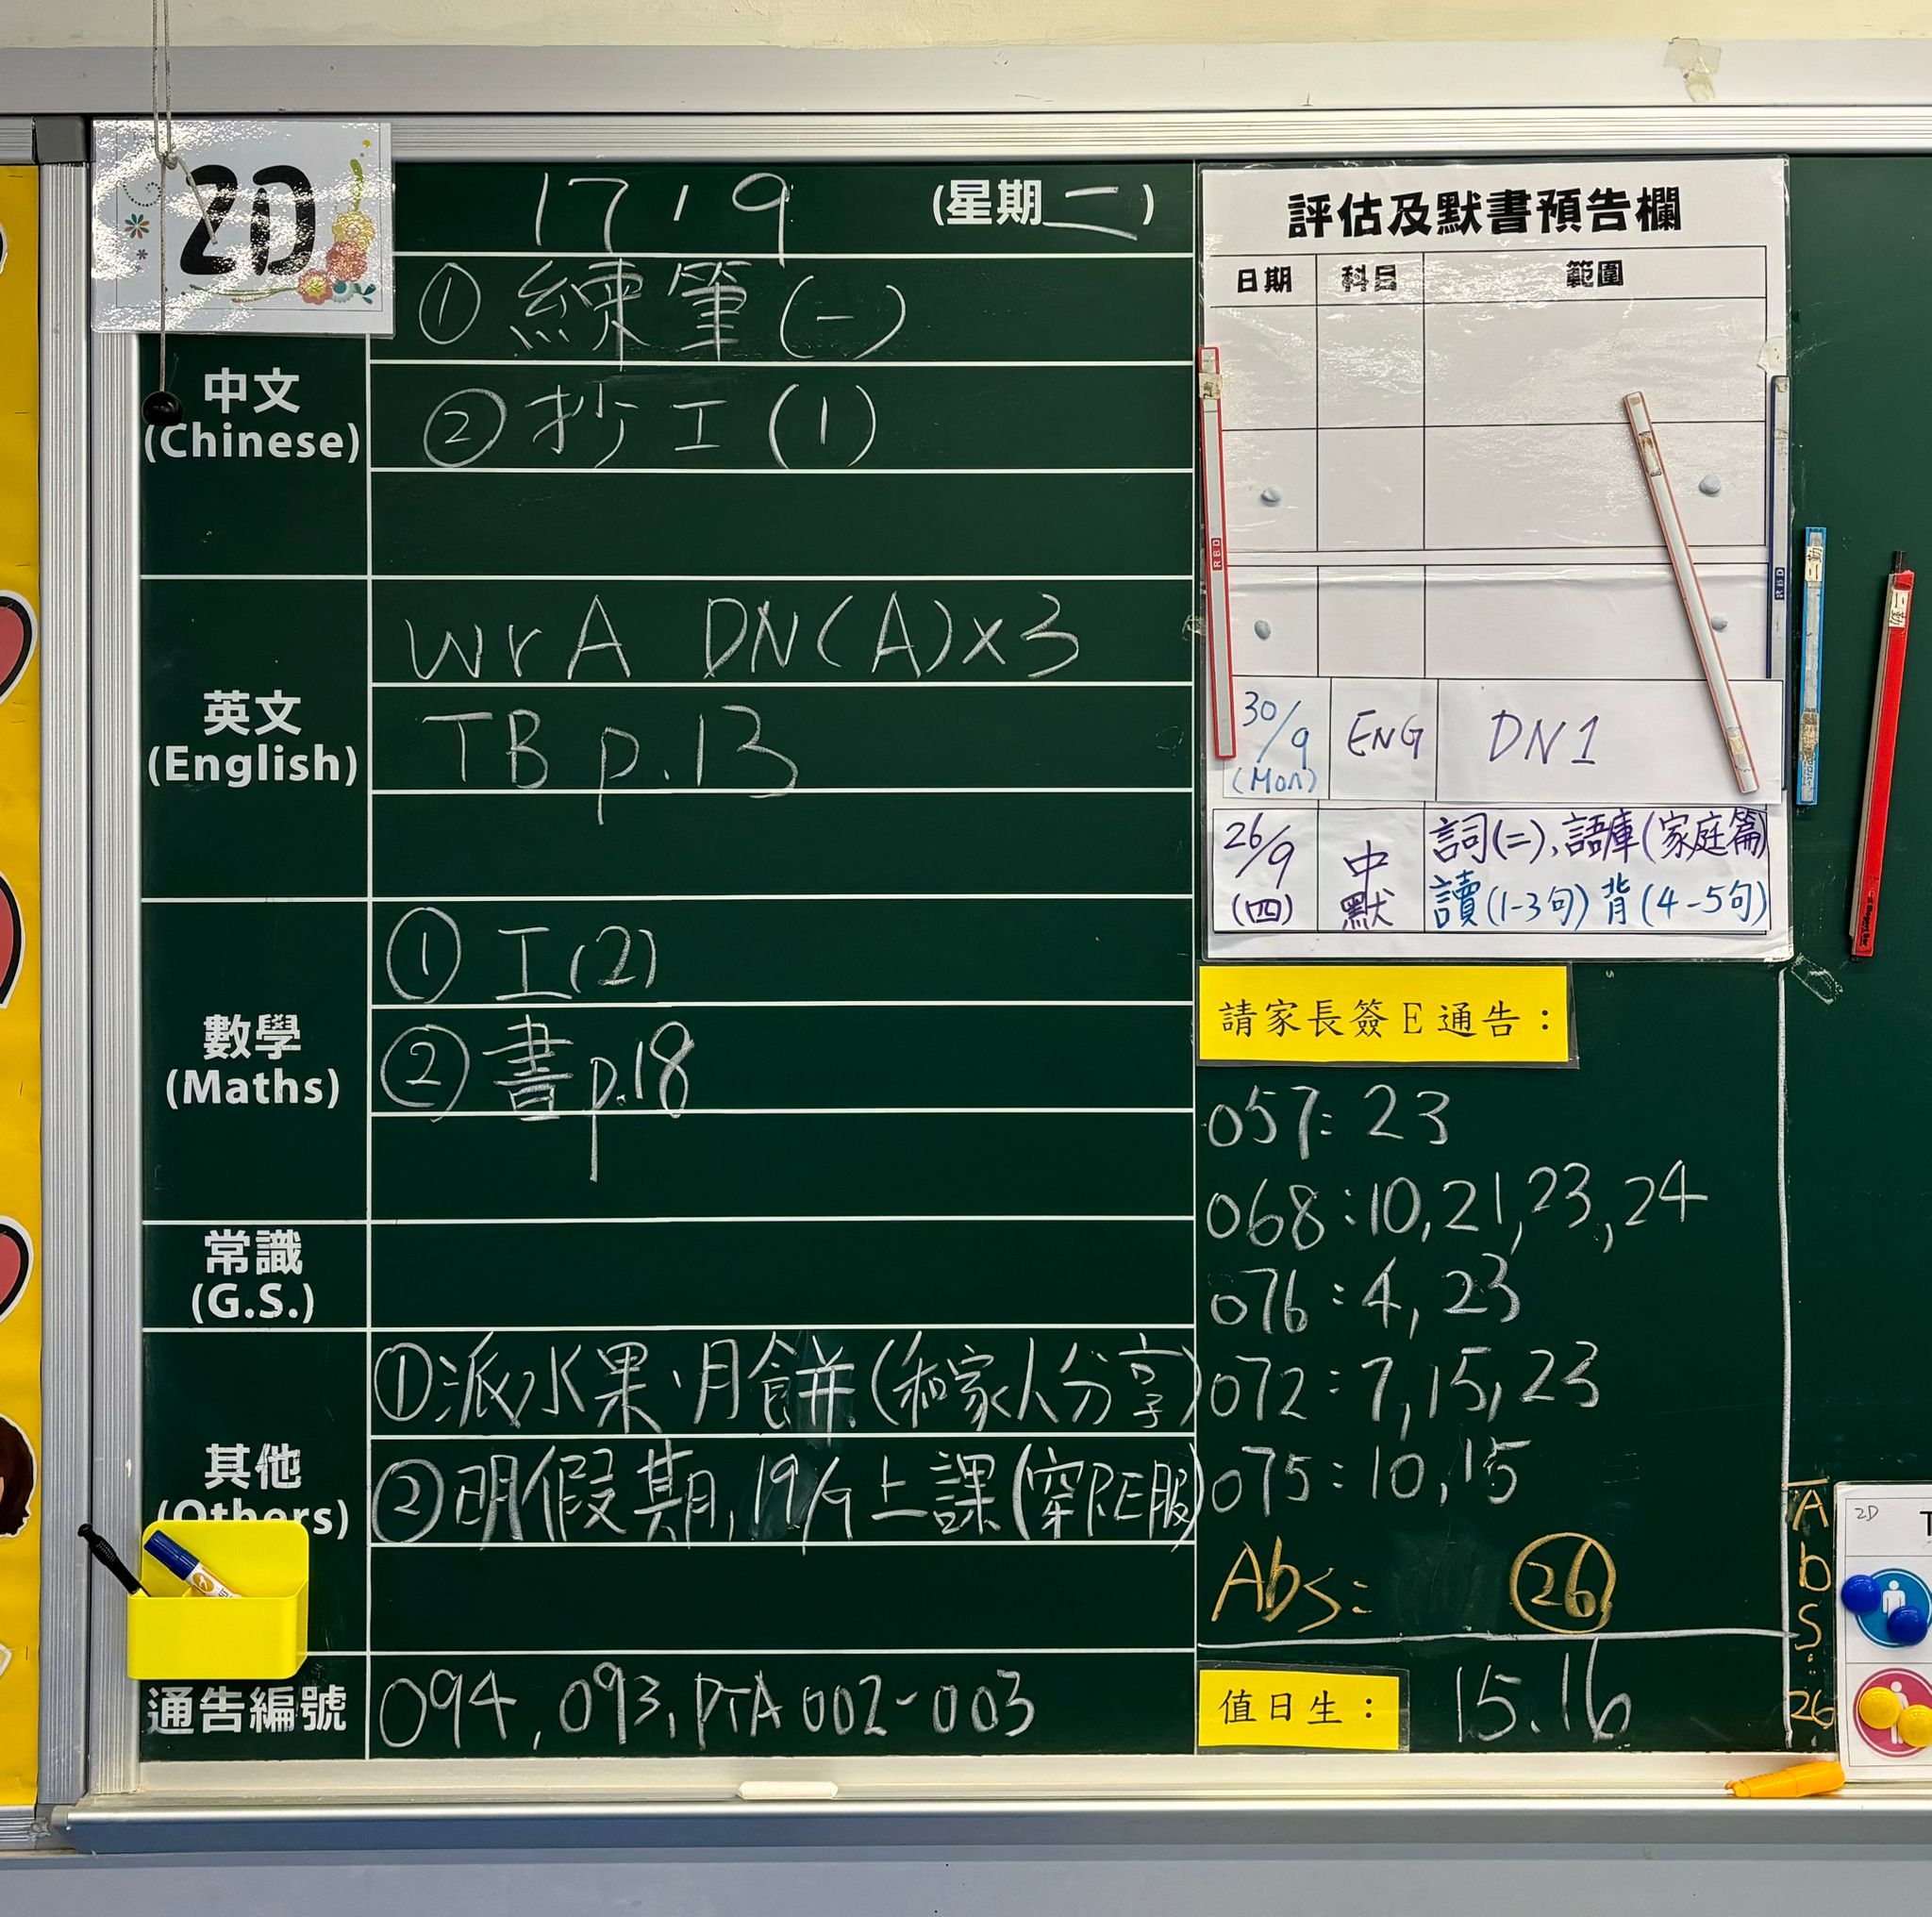 2D
17.9 (星期二)
中文
(Chinese)
① 練筆(一)
② 抄工(1)
英文
(English)
Wr A DN(A)x3
TB p.13
數學
(Maths)
① 工(2)
② 書p.18
常識
(G.S.)
其他
(Others)
①派水果、月餅(和家人分享)
②明假期, 19/9上課(穿P.E服)
通告編號
094, 093, PTA 002-003
評估及默書預告欄
日期 科目 範圍
30/9 ENG DN1
(Mon)
26/9 中默 詞(二),語庫(家庭篇)
(四) 讀(1-3句) 背(4-5句)
請家長簽E通告:
057: 23
068: 10, 21, 23, 24
076: 4, 23
072: 7, 15, 23
075: 10, 15
Abs: 26
值日生: 15.16
Abs: 26
2D
RBD